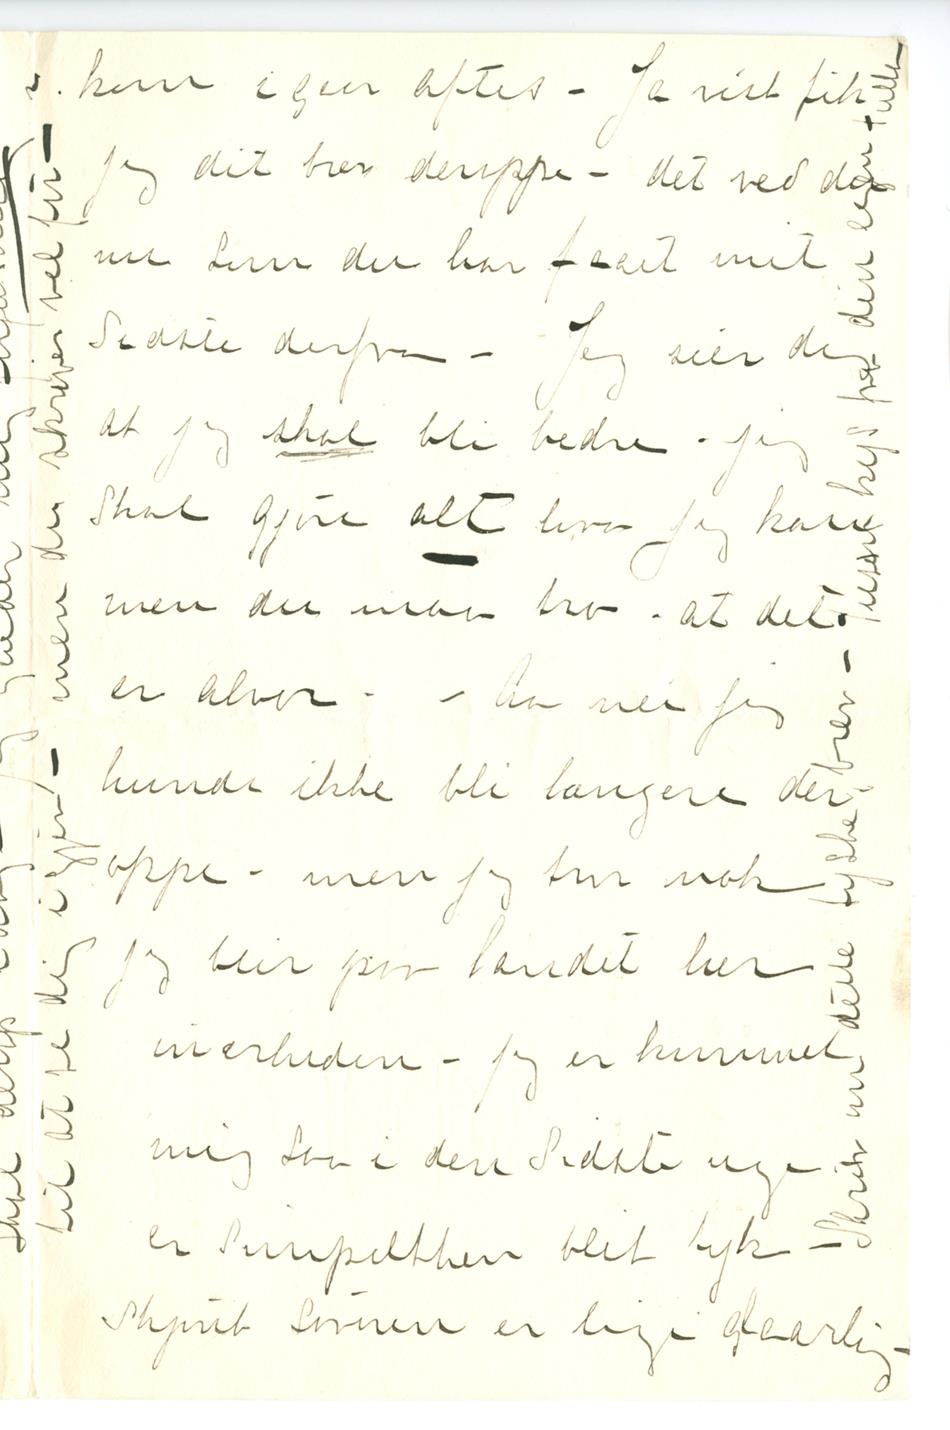 kom igaar aftes – Ja vist fik
jeg dit brev deroppe – det ved du
nu som du har faaet mit
Sidste derfra – Jeg sier dig
at jeg skal bli bedre – jeg
Skal gjöre alt hva jeg kan
men du maa tro – at det
er alvor – – Aa nei jeg
kunde ikke bli længere der
oppe – men jeg tror nok
jeg blir paa landet her
inærheden – Jeg er kommet
mig saa i den Sidste uge
er Simpelthen blit tyk –
Skjönt Sövnen er lige daarlig –
Skriv nu dette tyske brev –
kys fra din egen tulla
til at se dig igjen! – men du skriver vel för –